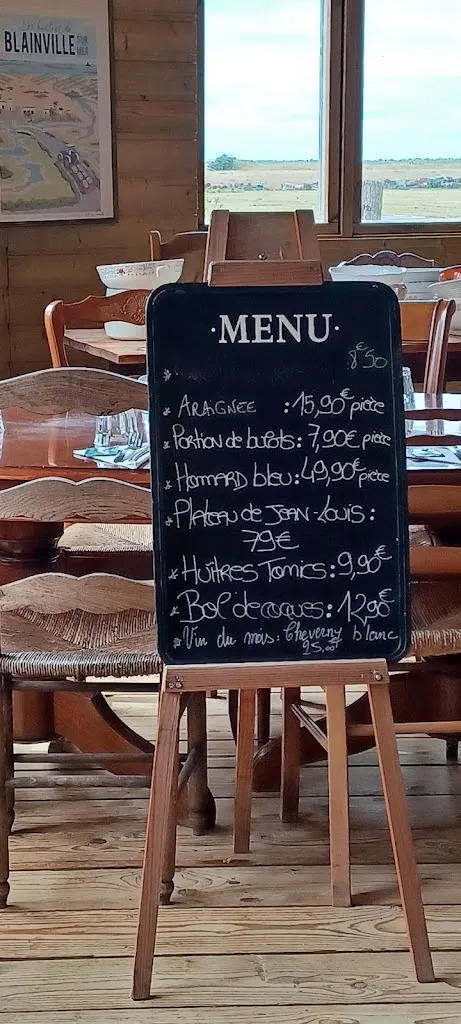 Les huîtres de
BLAINVILLE SUR MER
·MENU·
8€50
* ARAIGNEE : 15,90€ pièce
* Portion de bulots : 7,90€ pièce
* Homard bleu : 49,90€ pièce
* Plateau de JEAN-LOUIS :
79€
* Huîtres Tomics : 9,90€
* Bol de coques : 12,90€
* Vin du mois : Cheverny blanc
25,00€